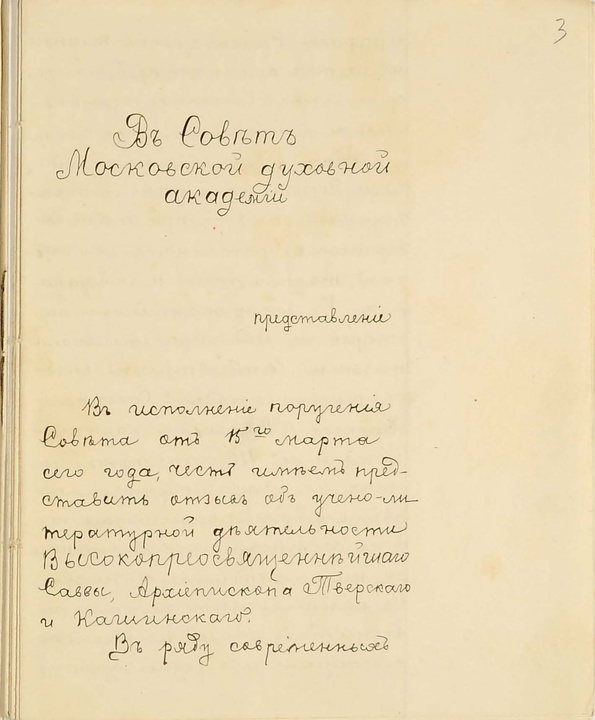 3
Въ Совѣтъ
Московской духовной
академіи
представленіе
Въ исполненіе порученія
Совѣта отъ 15го марта
сего года, честь имѣемъ пред-
ставить отзывъ объ учено-ли-
тературной дѣятельности
Высокопреосвященнѣйшаго
Саввы, Архіепископа Тверскаго
и Кашинскаго.
Въ ряду современныхъ